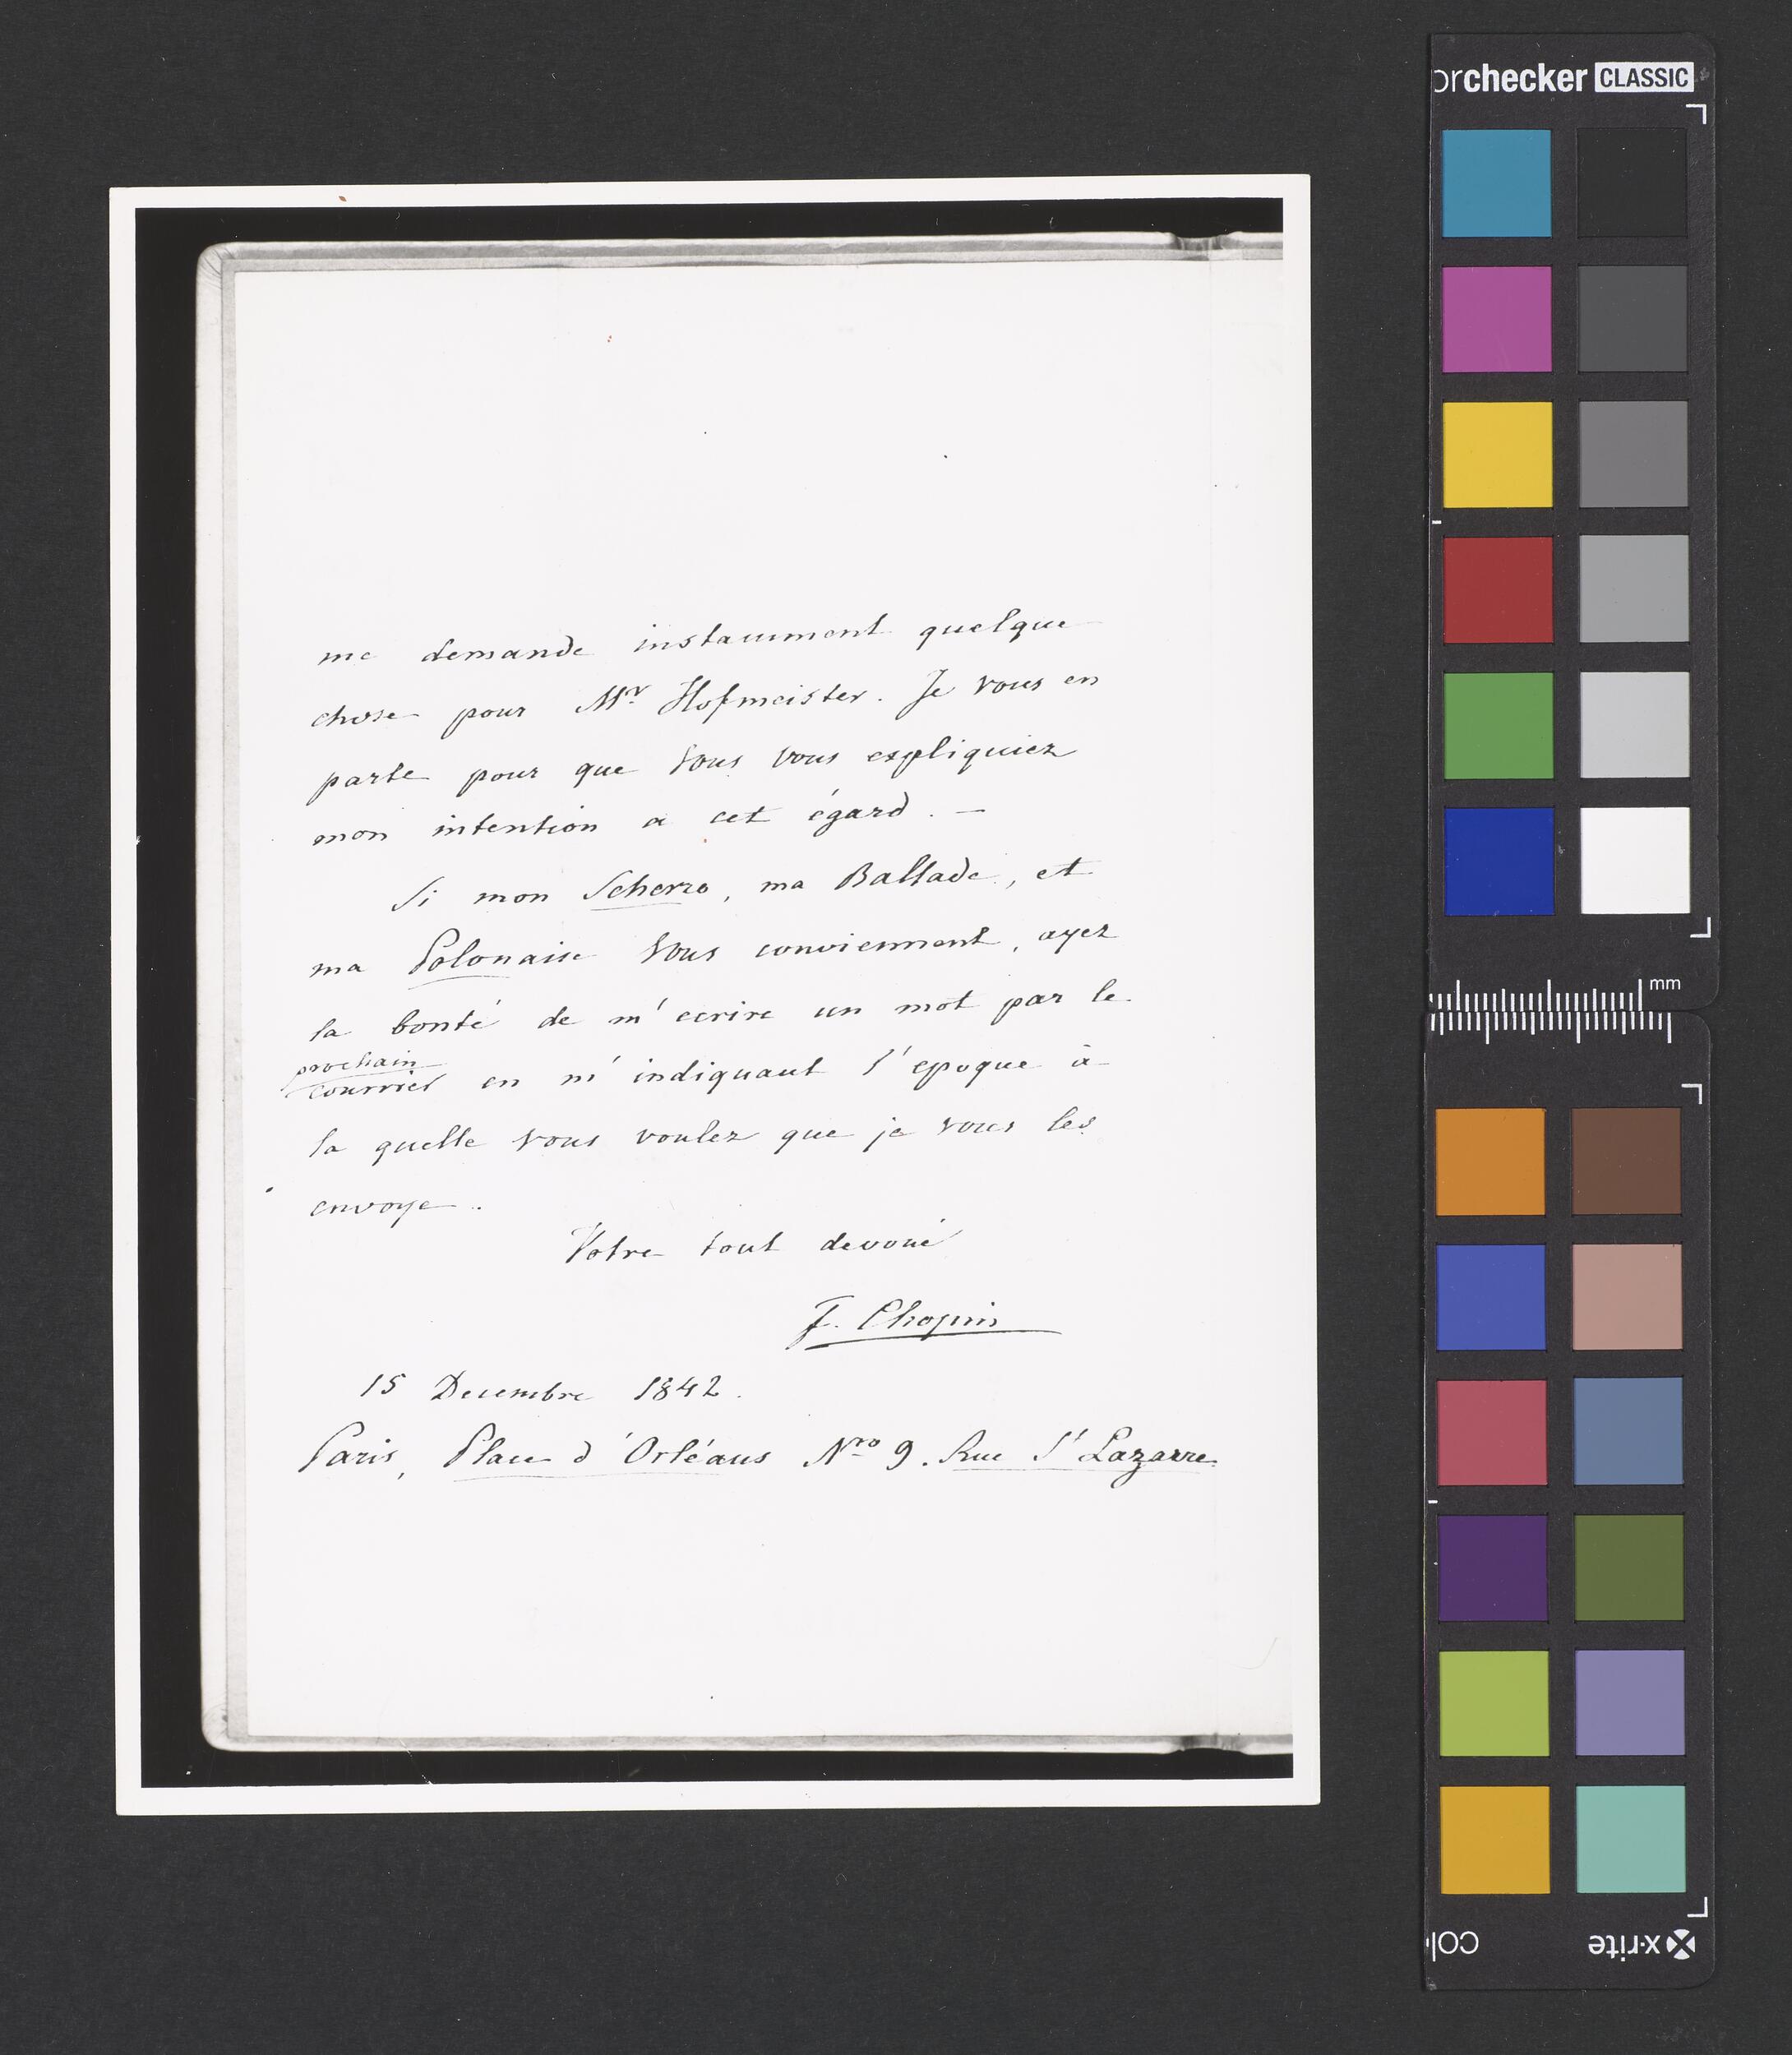 me demande instamment quelque
chose pour Mr. Hofmeister. Je vous en
parle pour que vous vous expliquiez
mon intention a cet égard. —
Si mon Scherzo, ma Ballade, et
ma Polonaise vous conviennent, ayez
la bonté de m'ecrire un mot par le
prochain
courrier en m'indiquant l'epoque à
la quelle vous voulez que je vous les
envoye.
Votre tout devoué
F. Chopin
15 Decembre 1842.
Paris, Place d'Orléans Nro 9. Rue St Lazarre.
orchecker CLASSIC
mm
x-rite
col